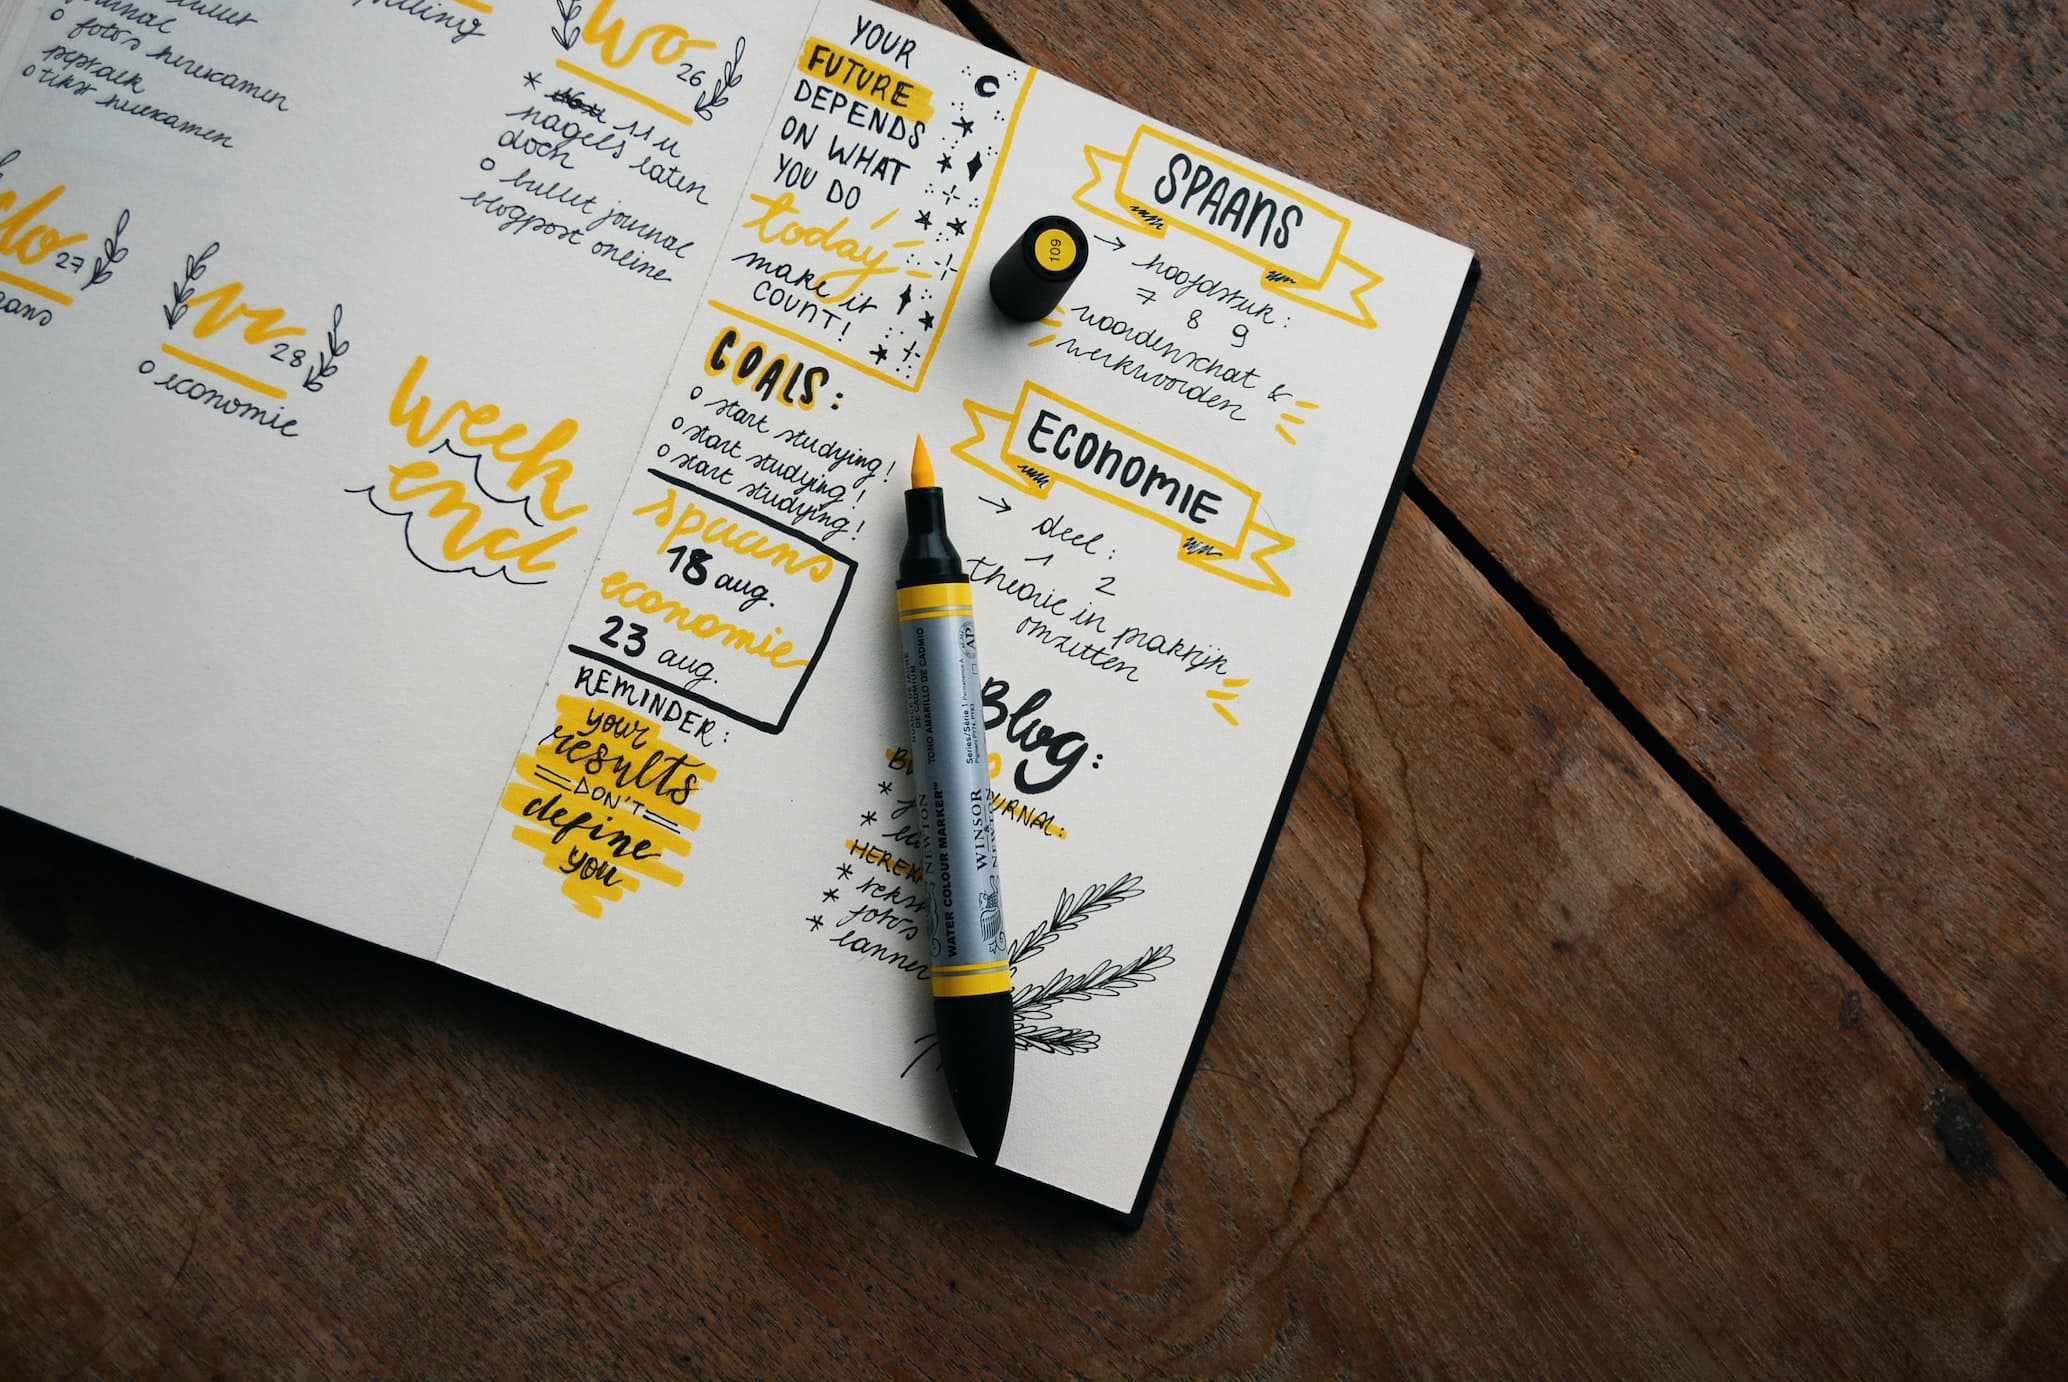 o foto's herexamen
o tekst herexamen
Wo
26
* 11 u
nagels laten
doen
o bullet journal
blogpost online
do
27
ve
28
o economie
Week
end
YOUR
FUTURE
DEPENDS
ON WHAT
YOU DO
today
make it
COUNT!
GOALS:
o start studying!
o start studying!
o start studying!
spaans
18 aug.
economie
23 aug.
REMINDER:
your
results
DON'T
define
you
SPAANS
→ hoofdstuk:
7 8 9
woordenschat &
werkwoorden
ECONOMIE
→ deel:
1 2
theorie in praktijk
omzetten
Blog:
* tekst
* foto's
109
WINSOR
& NEWTON
WATER COLOUR MARKER™
Series/Série 1
AP